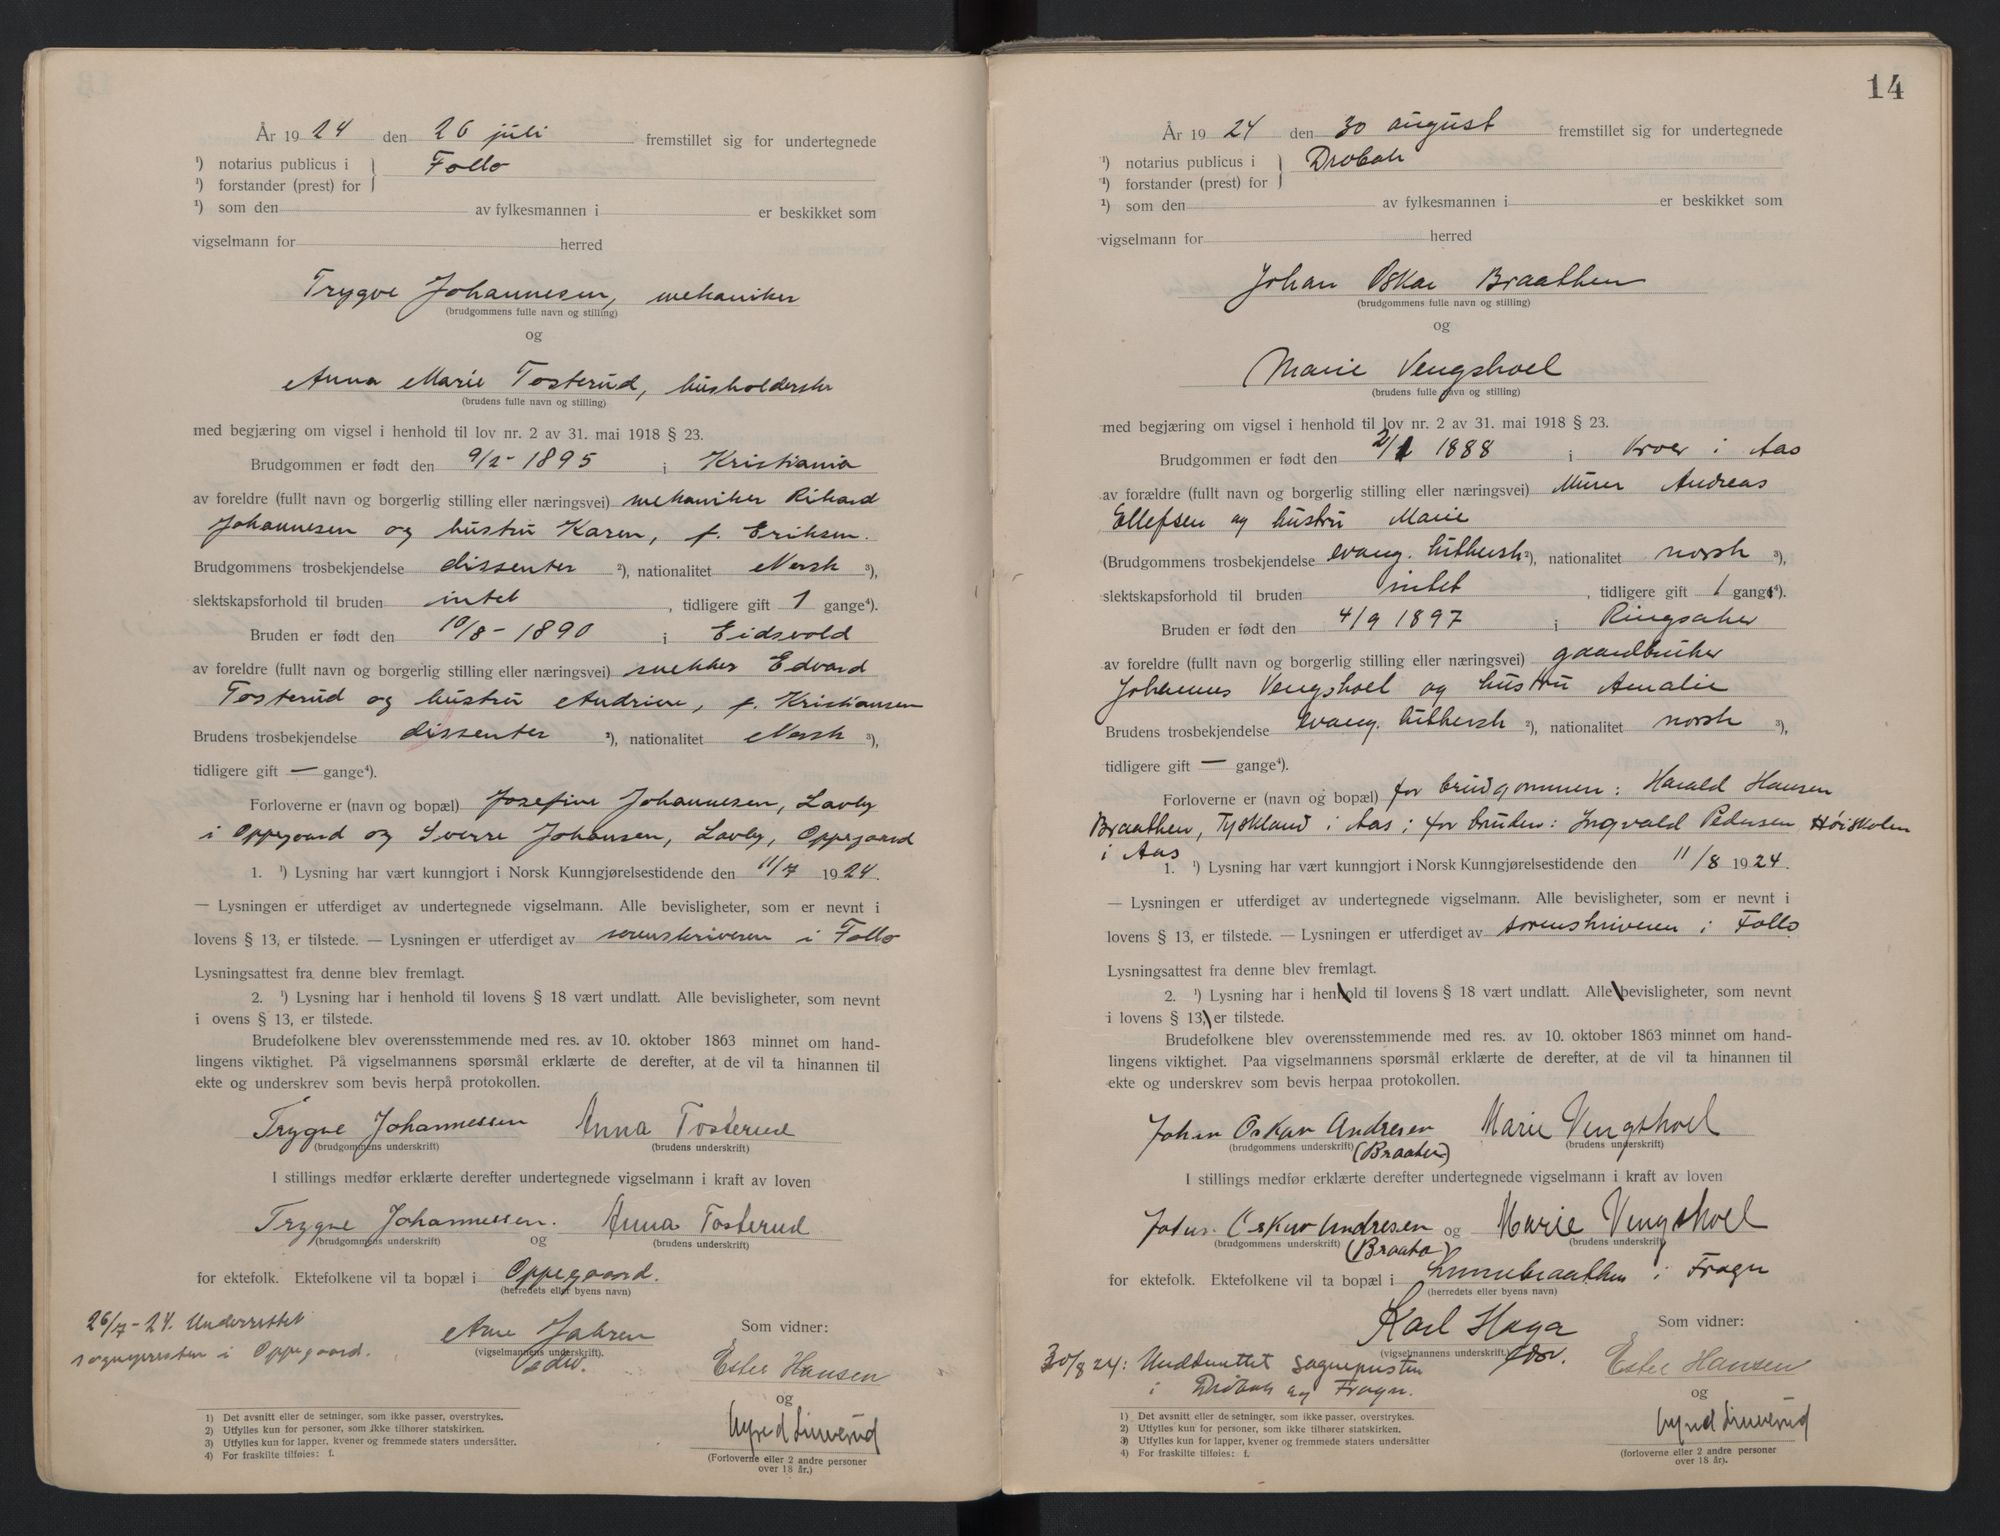 År 1924 den 26 juli fremstillet sig for undertegnede
¹) notarius publicus i } Follo
¹) forstander (prest) for
¹) som den av fylkesmannen i er beskikket som
vigselmann for herred
Trygve Johannesen, mekaniker
(brudgommens fulle navn og stilling)
og
Anna Marie Tosterud, husholderske
(brudens fulle navn og stilling)
med begjæring om vigsel i henhold til lov nr. 2 av 31. mai 1918 § 23.
Brudgommen er født den 9/2 - 1895 i Kristiania
av foreldre (fullt navn og borgerlig stilling eller næringsvei) mekaniker Rikard
Johannesen og hustru Karen, f. Eriksen.
Brudgommens trosbekjendelse dissenter ²), nationalitet Norsk ³),
slektskapsforhold til bruden intet, tidligere gift 1 gange⁴).
Bruden er født den 10/8 - 1890 i Eidsvold
av foreldre (fullt navn og borgerlig stilling eller næringsvei) snekker Edvard
Tosterud og hustru Andrine, f. Kristiansen
Brudens trosbekjendelse dissenter ²), nationalitet Norsk ³),
tidligere gift — gange⁴).
Forloverne er (navn og bopæl) Josefine Johannesen,
i Oppegaard og Sverre Johansen, Oppegaard
1. ¹) Lysning har vært kunngjort i Norsk Kunngjørelsestidende den 11/7 1924.
— Lysningen er utferdiget av undertegnede vigselmann. Alle bevisligheter, som er nevnt i
lovens § 13, er tilstede. — Lysningen er utferdiget av sorenskriveren i Follo
Lysningsattest fra denne blev fremlagt.
2. ¹) Lysning har i henhold til lovens § 18 vært undlatt. Alle bevisligheter, som nevnt
i ovens § 13, er tilstede.
Brudefolkene blev overensstemmende med res. av 10. oktober 1863 minnet om hand-
lingens viktighet. På vigselmannens spørsmål erklærte de derefter, at de vil ta hinannen til
ekte og underskrev som bevis herpå protokollen.
Trygve Johannessen Anna Tosterud
(brudgommens underskrift) (brudens underskrift)
I stillings medfør erklærte derefter undertegnede vigselmann i kraft av loven
Trygve Johannessen. Anna Tosterud
(brudgommens underskrift) og (brudens underskrift)
for ektefolk. Ektefolkene vil ta bopæl i Oppegaard.
(herredets eller byens navn)
26/7-24. Underrettet
sognepresten i Oppegaard.
Arne Jahren
(vigselmannens underskrift).
edv.
Som vidner:
Ester Hansen
og
Linnerud
(Forloverne eller 2 andre personer
over 18 år.)
1) Det avsnitt eller de setninger, som ikke passer, overstrykes.
2) Utfylles kun for personer, som ikke tilhører statskirken.
3) Utfylles kun for lapper, kvener og fremmede staters undersåtter.
4) For fraskilte tilføies: f.
14
År 1924 den 30 august fremstillet sig for undertegnede
¹) notarius publicus i } Drøbak
¹) forstander (prest) for
¹) som den av fylkesmannen i er beskikket som
vigselmann for herred
Johan Oskar Braathen
(brudgommens fulle navn og stilling)
og
Marie Vengshoel
(brudens fulle navn og stilling)
med begjæring om vigsel i henhold til lov nr. 2 av 31. mai 1918 § 23.
Brudgommen er født den 1888 i Kroer i Aas
av forældre (fullt navn og borgerlig stilling eller næringsvei) Murer Andreas
Ellefsen og hustru Marie
(Brudgommens trosbekjendelse evang. luthersk ²), nationalitet norsk ³),
slektskapsforhold til bruden intet, tidligere gift 1 gange⁴).
Bruden er født den 4/9 1897 i Ringsaker
av foreldre (fullt navn og borgerlig stilling eller næringsvei) gaardbruker
Johannes Vengshoel og hustru Amalie
Brudens trosbekjendelse evang. luthersk ²), nationalitet norsk ³),
tidligere gift — gange⁴).
Forloverne er (navn og bopæl) for brudgommen: Harald Hansen
Braathen, Tyskland i Aas; for bruden: Ingvald Pedersen Høiskolen
i Aas
1. ¹) Lysning har vært kunngjort i Norsk Kunngjørelsestidende den 11/8 1924.
— Lysningen er utferdiget av undertegnede vigselmann. Alle bevisligheter, som er nevnt i
lovens § 13, er tilstede. — Lysningen er utferdiget av sorenskriveren i Follo
Lysningsattest fra denne blev fremlagt.
2. ¹) Lysning har i henhold til lovens § 18 vært undlatt. Alle bevisligheter, som nevnt
i lovens § 13, er tilstede.
Brudefolkene blev overensstemmende med res. av 10. oktober 1863 minnet om hand-
lingens viktighet. Paa vigselmannens spørsmål erklærte de derefter, at de vil ta hinannen til
ekte og underskrev som bevis herpaa protokollen.
Johan Oskar Andresen Marie Vengshoel
(brudgommens underskrift) (brudens underskrift)
(Braaten)
I stillings medfør erklærte derefter undertegnede vigselmann i kraft av loven
Johan Oskar Andresen og Marie Vengshoel
(brudgommens underskrift) (brudens underskrift)
(Braate)
for ektefolk. Ektefolkene vil ta bopæl i Linnebraathen i Frogn
(herredets eller byens navn)
Karl Haga
(vigselmannens underskrift).
30/8 24: Underrettet sognepresten
i Drøbak og Frogn.
Som vidner:
Ester Hansen
og
Linnerud
(forloverne eller 2 andre personer
over 18 år).
1) Det avsnitt eller de setninger, som ikke passer, overstrykes.
2) Utfylles kun for personer, som ikke tilhører statskirken.
3) Utfylles kun for lapper, kvener og fremmede staters undersåtter
4) For fraskilte tilføies: f.